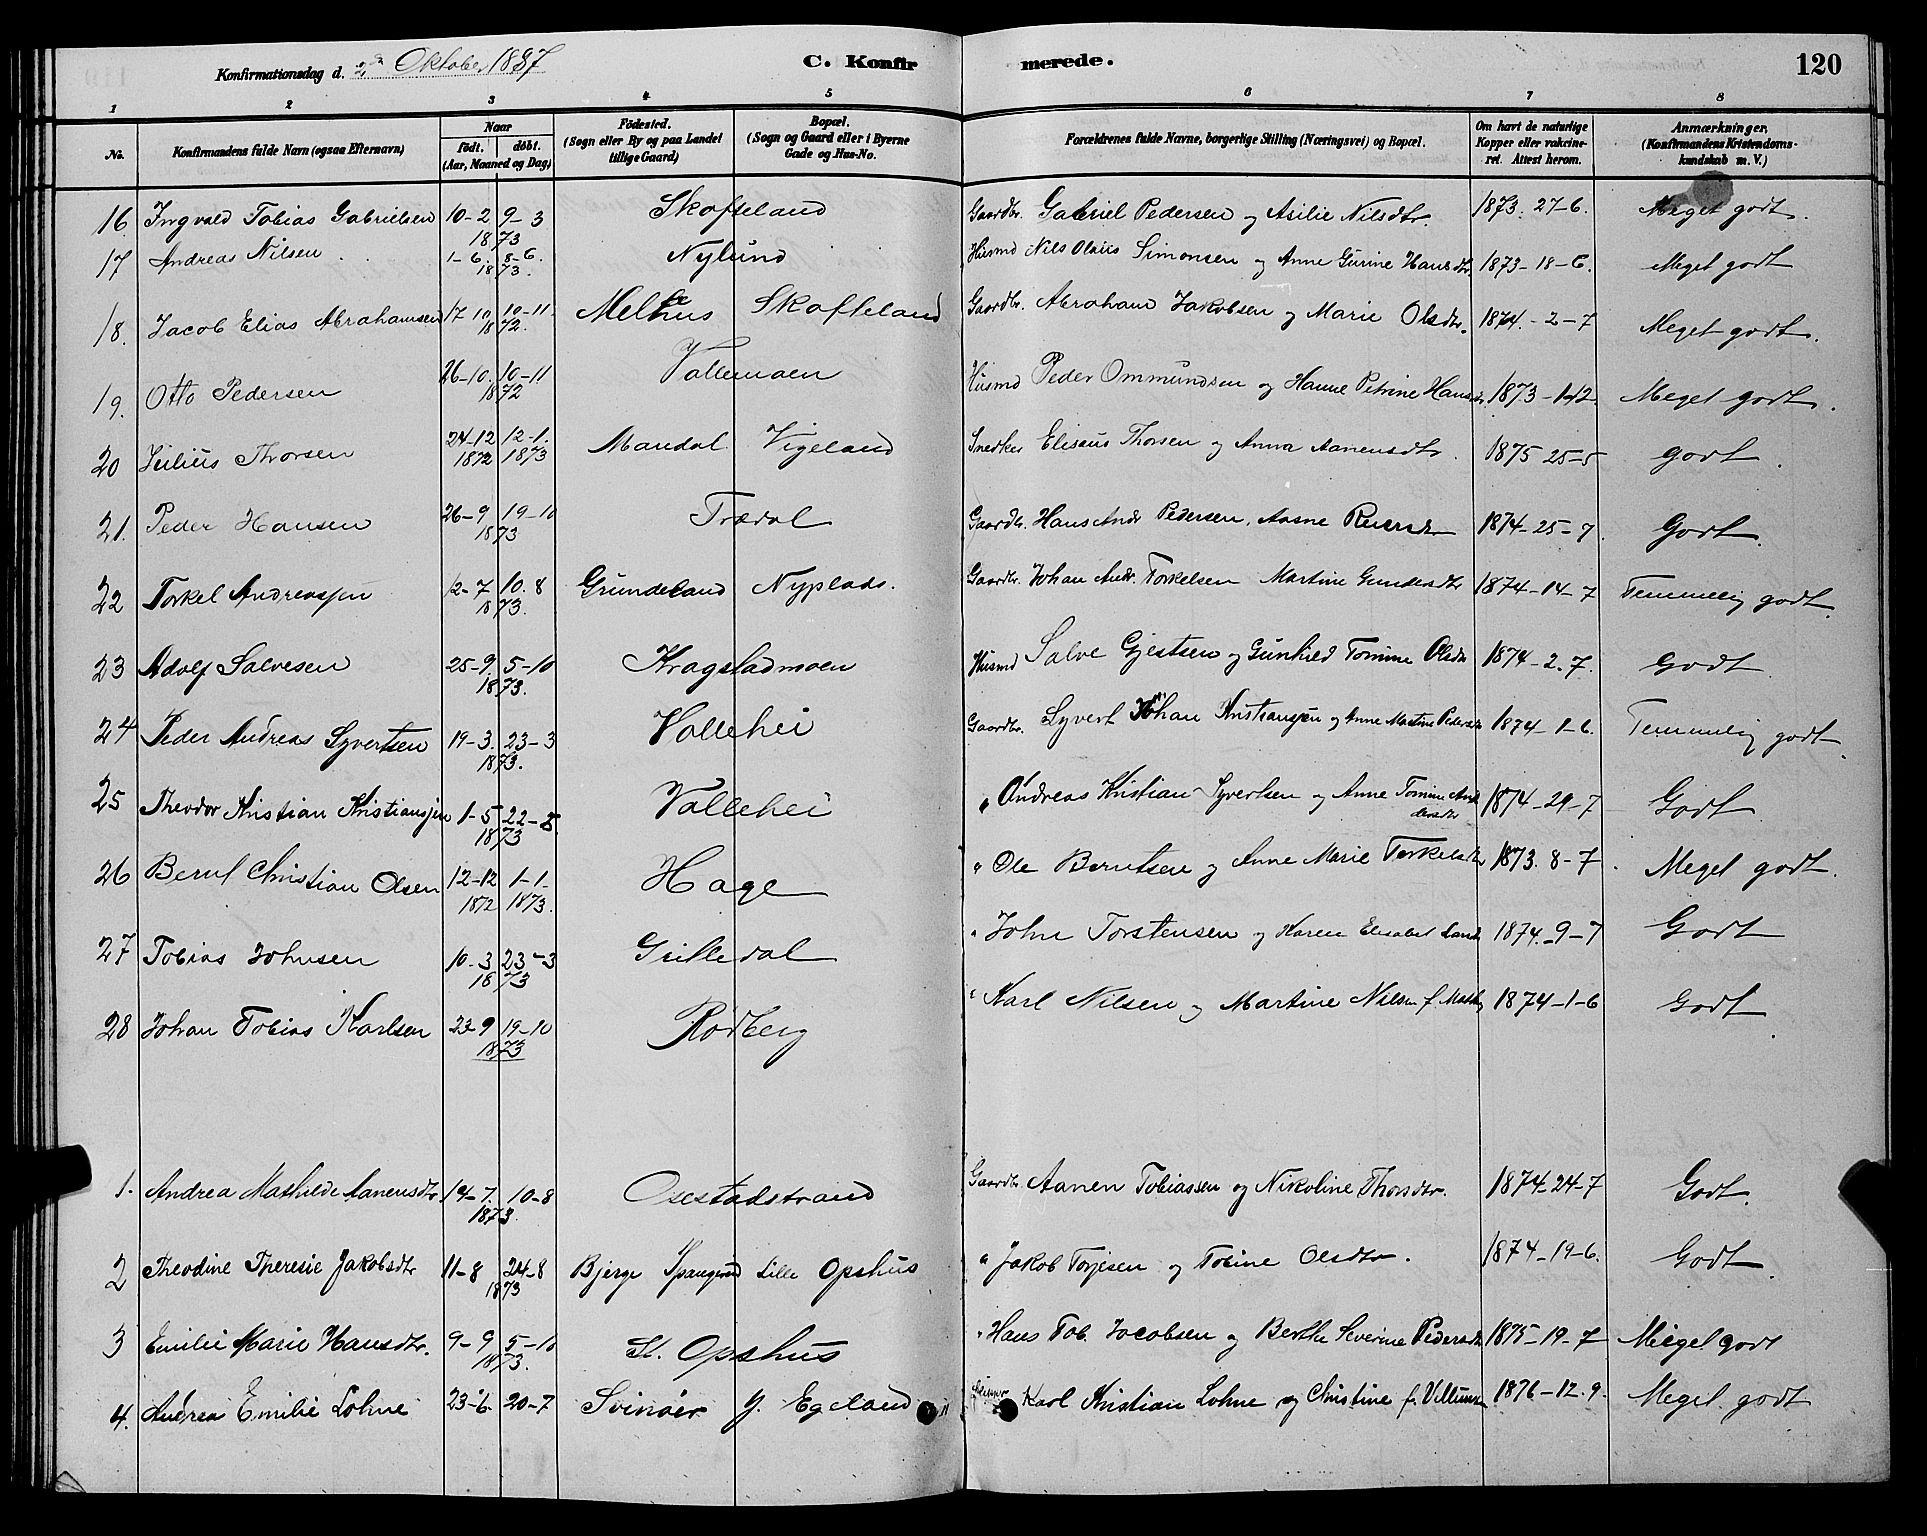 Konfirmationsdag d. 2 Oktober 1887 C. Konfirmerede. 120
1 2 3 4 5 6 7 8
No. Konfirmandens fulde Navn (ogsaa Efternavn) Naar født. døbt. (Aar, Maaned og Dag) Fødested. (Sogn eller By og paa Landet tillige Gaard) Bopæl. (Sogn og Gaard eller i Byerne Gade og Hus-No. Forældrenes fulde Navne, borgerlige Stilling (Næringsvei) og Bopæl. Om havt de naturlige Kopper eller vakcineret. Attest herom. Anmærkninger. (Konfirmandens Kristendomskundskab m. V.)
16. Ingvald Tobias Gabrielsen 10-2 9-3 1873 Skofteland Gaardbr. Gabriel Pedersen og Asilie Nilsdtr. 1873. 27-6. Meget godt.
17 Andreas Nilsen 1-6. 8-6. 1873. Nylund Husmd Nils Olaus Simonsen og Anne Gurine Hansdtr. 1873-18-6. Meget godt
18. Jacob Elias Abrahamsen 17 10 10-11. 1872. Melhus Skofteland Gaardbr. Abraham Jakobsen og Marie Olsdtr. 1874.-2-7 Meget godt.
19. Otto Pedersen 26-10. 10-11 1872 Vallemoen Husmd Peder Ommundsen og Hanne Petrine Hansdtr 1873-1-12. Meget godt.
20 Julius Thorsen 24-12 1872 12-1. 1873 Mandal Vigeland Snedker Elisæus Thorsen og Anna Aanensdtr. 1875 25-5 godt.
21. Peder Hansen 26-9 19-10 1873 Trædal Gaardbr. Hans Andr Pedersen, Aasne Reiersdtr 1874-25-7. Godt.
22 Torkel Andreassen 12-7 10.8 1873. Grundeland Nyplads. Gaardbr. Johan Andr. Torkelsen Martine Gundersdtr 1874-14-7 Temmelig godt.
23 Adolf Salvesen 25-9. 5-10 1873. Kragstadmoen Husmd Salve Gjertsen og Gunhild Tomine Olsdtr 1874-2.7. Godt
24 Peder Andreas Syvertsen 19-3. 23-3 1873. Vallehei Gaardbr. Syvert Johan Kristiansen og Anne Martine Pedersdtr 1874-1-6. Temmelig godt.
25 Theodor Kristian Kristiansen 1-5 22-5. 1873 Vallehei " Andreas Kristian Syvertsen og Anne Tomine Andersdtr 1874-29-7 Godt
26 Bernt Christian Olsen 12-12 1872 1-1- 1873. Hage " Ole Berntsen og Anne Marie Torkelsdtr 1873. 8-7. Meget godt.
27 Tobias Johnsen 10-3 23-3 1873 Grilledal " John Torstensen og Karen Elisabet 1874.-9-7 Godt
28 Johan Tobias Karlsen 23-9 19-10 1873 Rødberg " Karl Nilsen og Martine Nilsen f. 1874-1-6 Godt
1. Andrea Mathilde Aanensdtr 14-7. 10-8 1873. Osestadstrand Gaardbr. Aanen Tobiassen og Nikoline Thorsdtr. 1874-24-7 Godt.
2 Theodine Theresie Jakobsdtr 11-8 24-8 1873 Bjerge Spangereid Lille Opshus " Jakob Torjesen og Tobine Olsdtr. 1874-19-6. Godt
3 Emilie Marie Hansdtr. 9-9 5-10 1873. St. Opshus " Hans Tob. Jacobsen og Berthe Severine Pedersdtr 1875-19-7 Meget godt
4. Andrea Emilie Lohne 23-6. 20-7 Svinøer Y. Egeland Karl Kristian Lohne og Christine f. Villumsen 1876-12.9. Meget godt